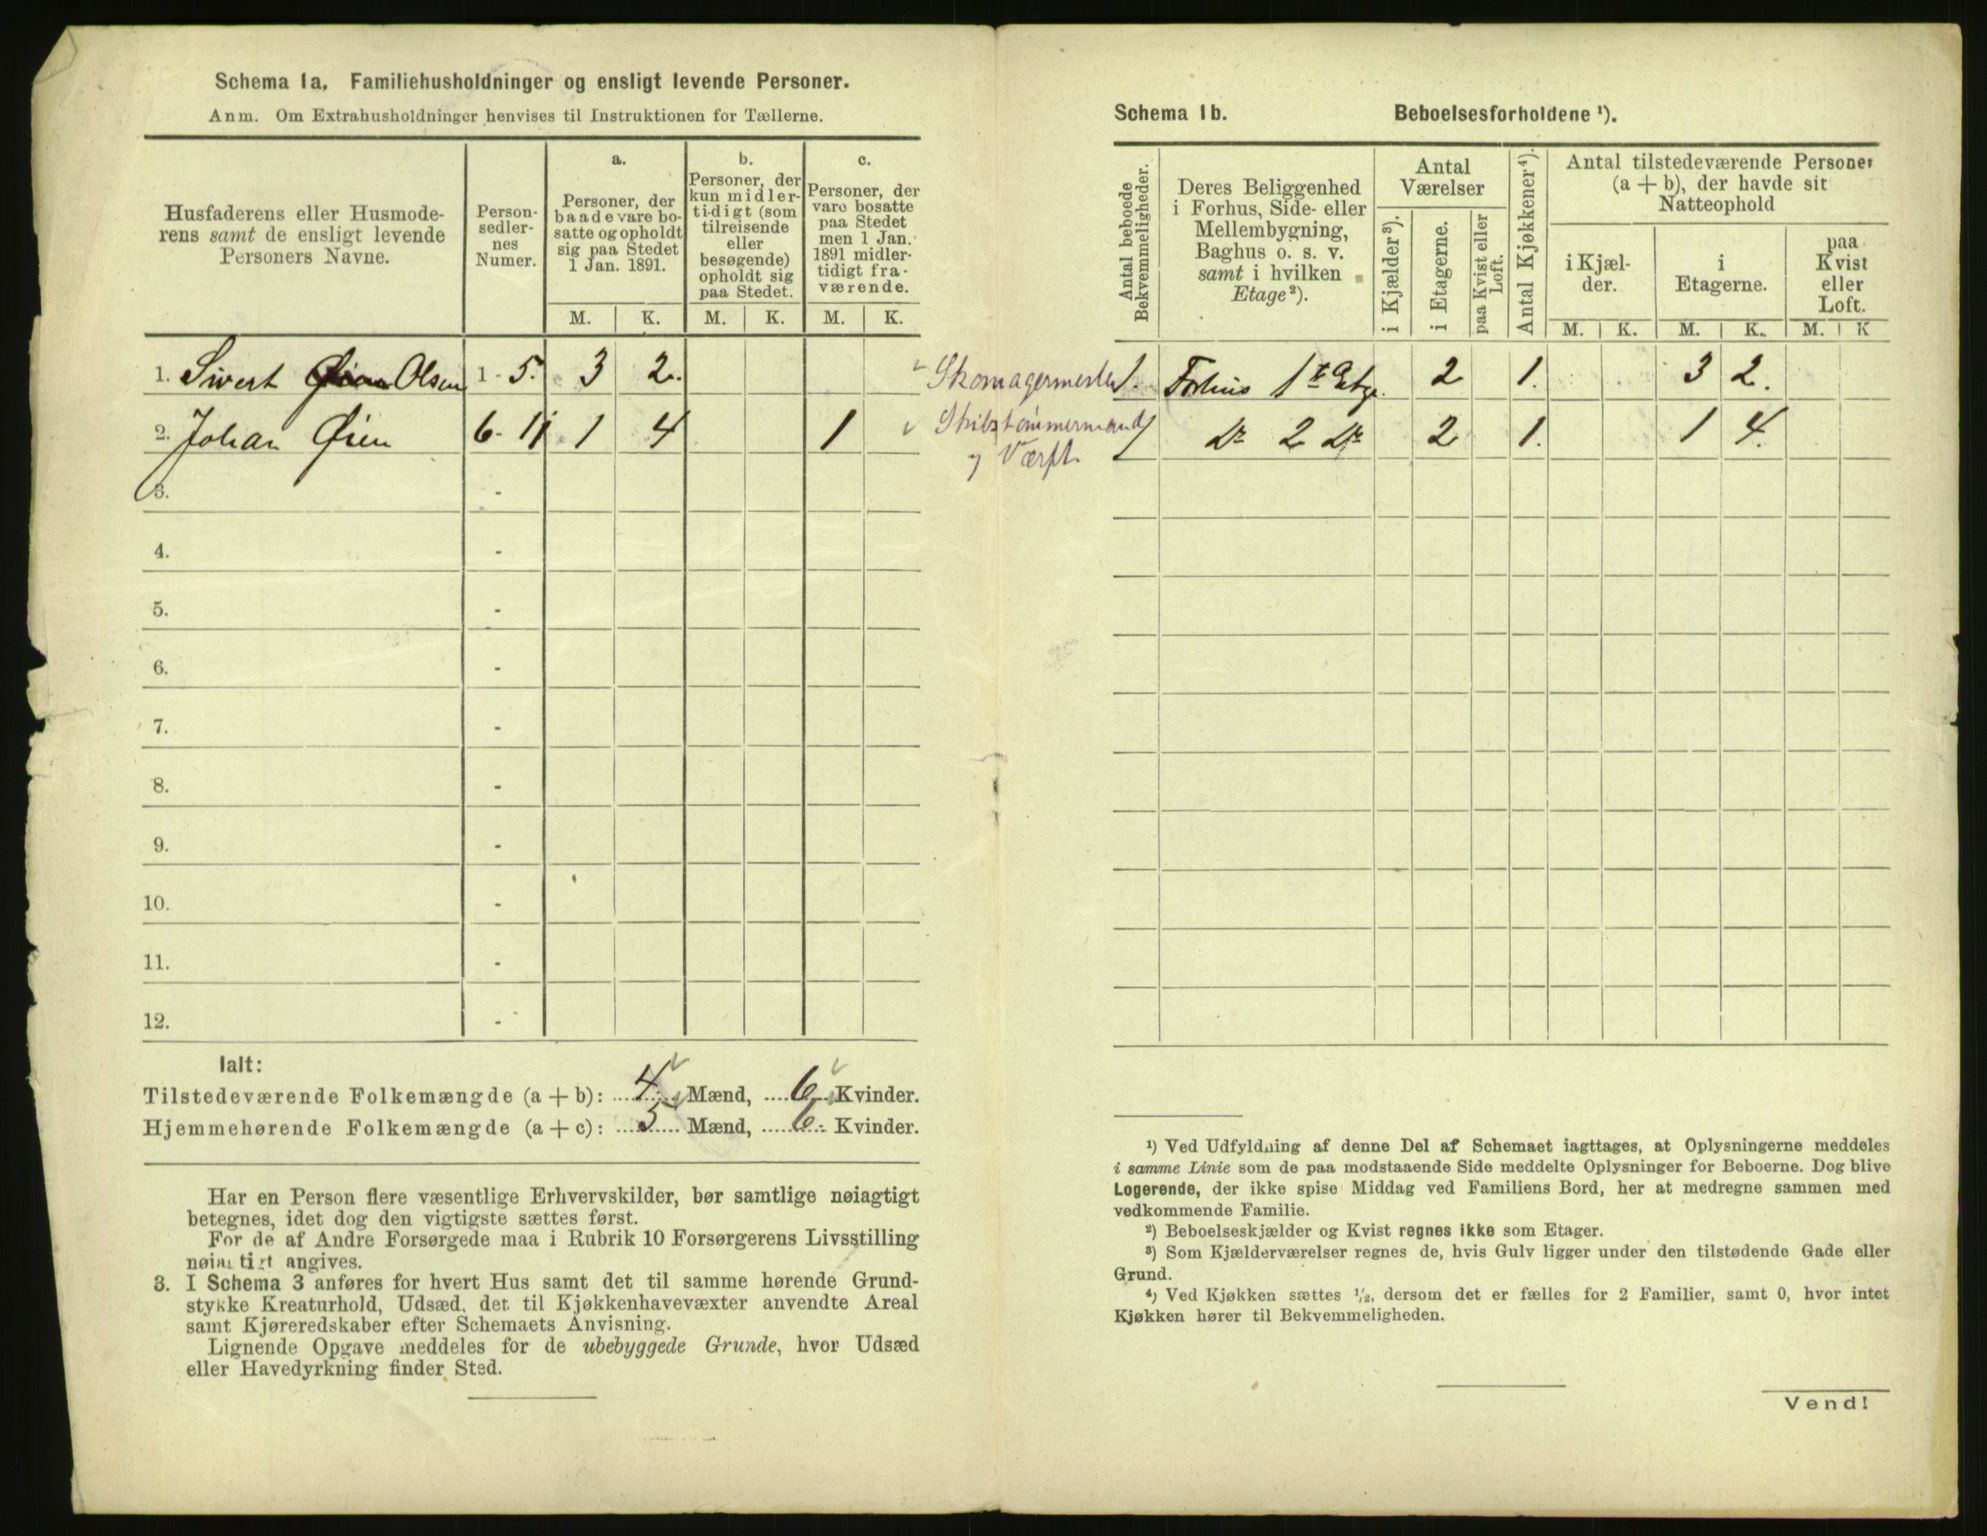 Schema 1a. Familiehusholdninger og ensligt levende Personer.
Anm. Om Extrahusholdninger henvises til Instruktionen for Tællerne.
Husfaderens eller Husmode-
rens samt de ensligt levende
Personers Navne.
Person-
sedler-
nes
Numer.
a.
Personer, der
baade vare bo-
satte og opholdt
sig paa Stedet
1 Jan. 1891.
b.
Personer, der
kun midler-
tidigt (som
tilreisende
eller
besøgende)
opholdt sig
paa Stedet.
c.
Personer, der
vare bosatte
paa Stedet
men 1 Jan.
1891 midler-
tidigt fra-
værende.
M. K. M. K. M. K.
1. Sivert Olsen 1 - 5. 3 2.
2. Johan Øien 6 - 11 1 4 1
3. -
4. -
5. -
6. -
7. -
8. -
9. -
10. -
11. -
12. -
Ialt:
Tilstedeværende Folkemængde (a + b): 4 Mænd, 6 Kvinder.
Hjemmehørende Folkemængde (a + c): 5 Mænd, 6 Kvinder.
Har en Person flere væsentlige Erhvervskilder, bør samtlige nøiagtigt
betegnes, idet dog den vigtigste sættes først.
For de af Andre Forsørgede maa i Rubrik 10 Forsørgerens Livsstilling
nøiagtigt angives.
3. I Schema 3 anføres for hvert Hus samt det til samme hørende Grund-
stykke Kreaturhold, Udsæd, det til Kjøkkenhavevæxter anvendte Areal
samt Kjøreredskaber efter Schemaets Anvisning.
Lignende Opgave meddeles for de ubebyggede Grunde, hvor Udsæd
eller Havedyrkning finder Sted.
Schema 1b. Beboelsesforholdene ¹).
Antal beboede
Bekvemmeligheder.
Deres Beliggenhed
i Forhus, Side- eller
Mellembygning,
Baghus o. s. v.
samt i hvilken
Etage ²).
Antal
Værelser
i Kjælder ³).
i Etagerne.
paa Kvist eller
Loft.
Antal Kjøkkener ⁴).
Antal tilstedeværende Personer
(a + b), der havde sit
Natteophold
i Kjæl-
der.
i
Etagerne.
paa
Kvist
eller
Loft.
M. K. M. K. M. K
Skomagermester 1. Forhus 1ste Etge. 2 1. 3 2.
Skibstømmermand 1 Do 2 Do 2 1. 1 4.
Værft
¹) Ved Udfyldning af denne Del af Schemaet iagttages, at Oplysningerne meddeles
i samme Linie som de paa modstaaende Side meddelte Oplysninger for Beboerne. Dog blive
Logerende, der ikke spise Middag ved Familiens Bord, her at medregne sammen med
vedkommende Familie.
²) Beboelseskjælder og Kvist regnes ikke som Etager.
³) Som Kjælderværelser regnes de, hvis Gulv ligger under den tilstødende Gade eller
Grund.
⁴) Ved Kjøkken sættes ¹/₂, dersom det er fælles for 2 Familier, samt 0, hvor intet
Kjøkken hører til Bekvemmeligheden.
Vend!